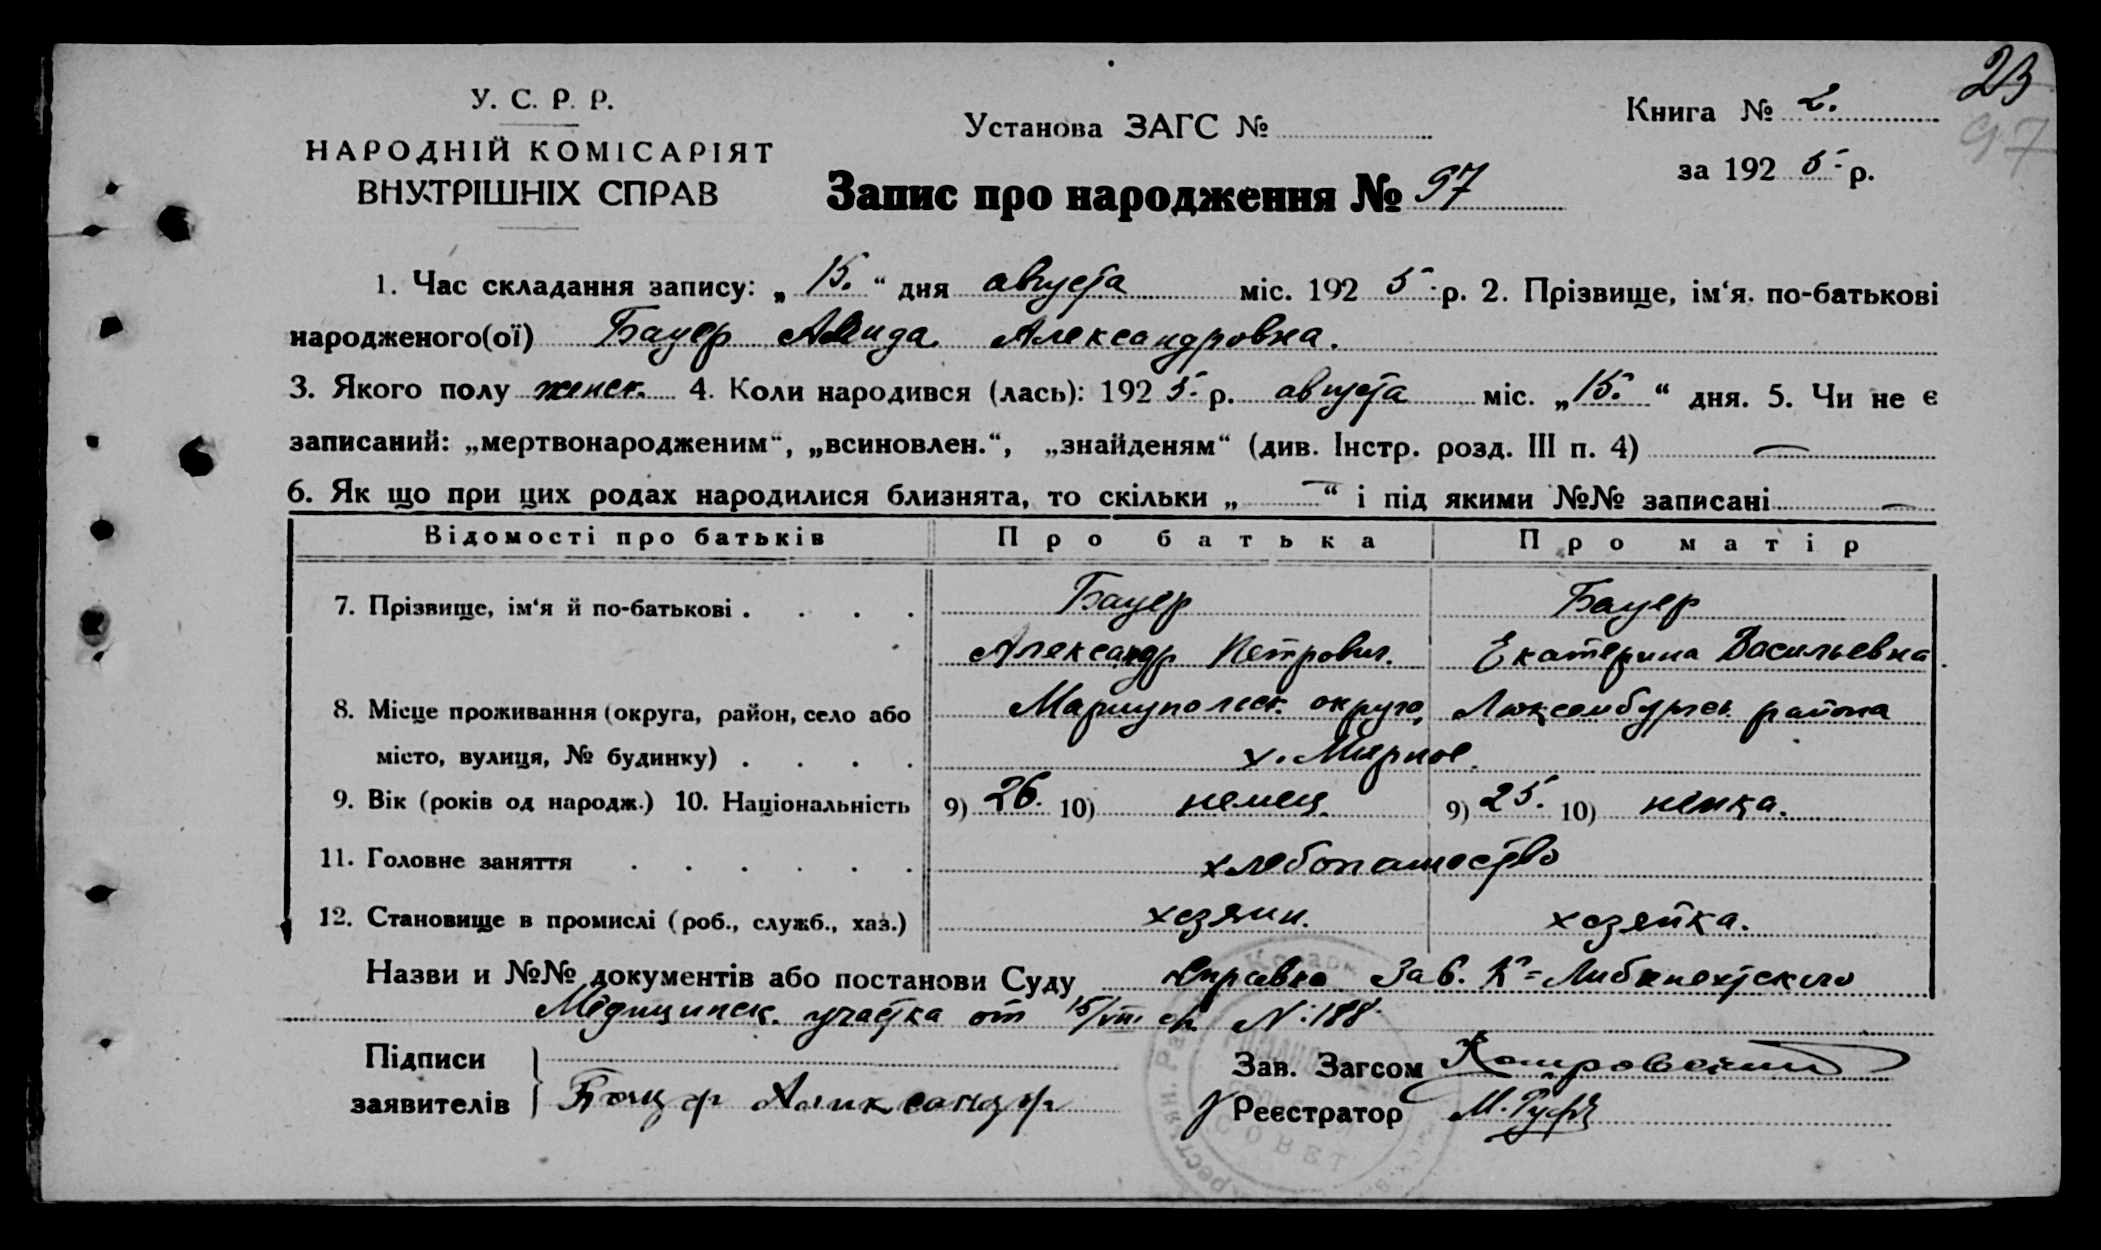 23
97
У. С. Р. Р.
НАРОДНІЙ КОМІСАРІЯТ
ВНУТРІШНІХ СПРАВ
Установа ЗАГС №
Книга № 2.
за 192 5 р.
Запис про народження № 97
1. Час складання запису: „ 15. “ дня августа міс. 192 5 р. 2. Прізвище, ім‘я, по-батькові
народженого(ої) Бауер Александровна.
3. Якого полу женск. 4. Коли народився (лась): 192 5 р. августа міс. „ 15. “ дня. 5. Чи не є
записаний: „мертвонародженим“, „всиновлен.“, „знайденям“ (див. Інстр. розд. III п. 4) —
6. Як що при цих родах народилися близнята, то скільки „ — “ і під якими №№ записані —
Відомості про батьків Про батька Про матір
7. Прізвище, ім‘я й по-батькові . . . . Бауер Бауер
Александр Петрович. Екатерина Васильевна.
8. Місце проживання (округа, район, село або Мариупольск. округа, Люксембургск. района
місто, вулиця, № будинку) . . . . х. Мирное.
9. Вік (років од народж.) 10. Національність 9) 26. 10) немец. 9) 25. 10) немка.
11. Головне заняття . . . . . . хлебопашество
12. Становище в промислі (роб., служб., хаз.) хозяин. хозяйка.
Назви и №№ документів або постанови Суду Справка Зав. К=Либкнехтского
Медицинск. участка от 15/VIII с/г. № 188.
Підписи
заявителів } Бауер Александр
Зав. Загсом
Реєстратор
СОВЕТ